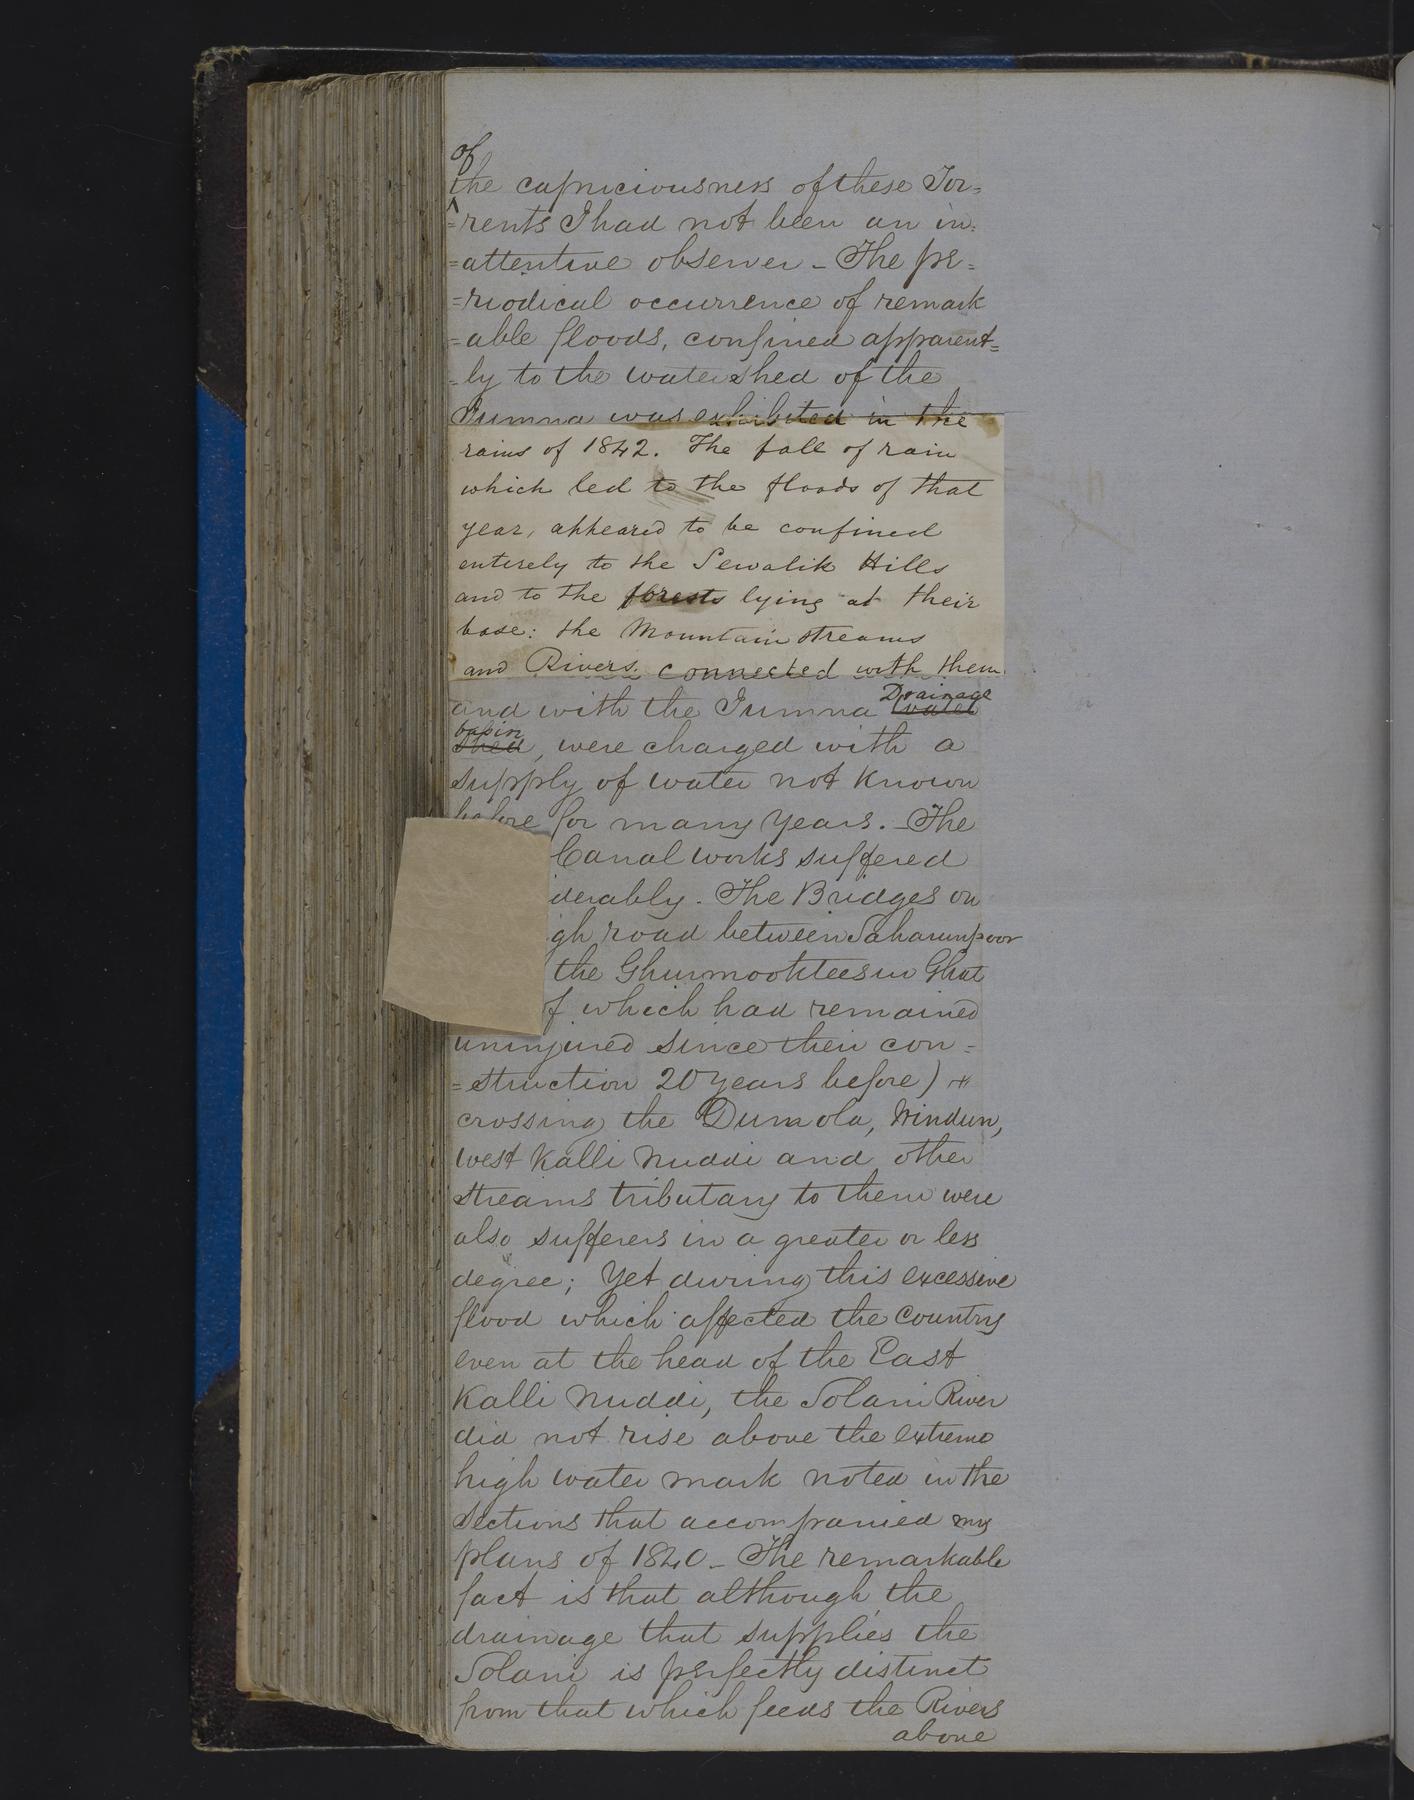 of
the capriciousness of these Tor=
=rents I had not been an in=
=attentive observer - The pe=
=riodical occurrence of remark
=able floods, confined apparent=
=ly to the watershed of the
Jumna was exhibited in the
rains of 1842. The fall of rain
which led to the floods of that
year, appeared to be confined
entirely to the Sewalik Hills
and to the forests lying at their
base: the Mountain streams
and Rivers connected with them
Drainage
and with the Jumna water
basin
shed, were charged with a
supply of water not known
before for many years. - The
Canal works suffered
derably. The Bridges on
gh road between Saharunpoor
the Ghurmooktesur Ghat
f which had remained
uninjured since their con=
=struction 20 years before)
crossing the Dumola, Hindun,
West Kalli Nuddi and other
streams tributary to them were
also sufferers in a greater or less
degree; Yet during this excessive
flood which affected the Country
even at the head of the East
Kalli Nuddi, the Solani River
did not rise above the extreme
high water mark noted in the
sections that accompanied my
plans of 1840 - The remarkable
fact is that although the
drainage that supplies the
Solani is perfectly distinct
from that which feeds the Rivers
above